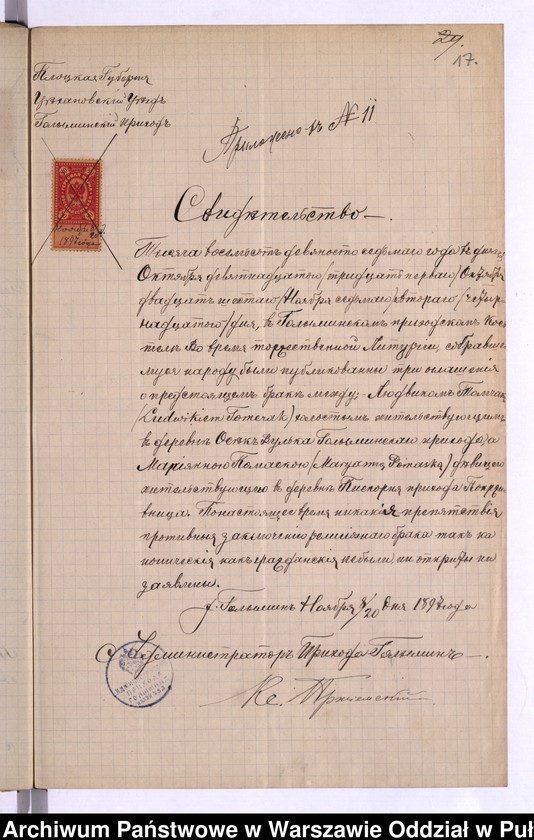 29.
17.
Плоцкая Губернія
Цѣхановскій Уѣздъ
Голыминскій приходъ
Приложено къ № 11
Ноября 8/20
1897 года
Свидѣтельство
Тысяча восемьсотъ девяносто седьмаго года въ дняхъ
Октября девятнадцатаго /тридцать перваго/ Октября
двадцать шестаго /Ноября седьмаго/ втораго /четыр
надцатаго/ дня, въ Голыминскомъ приходскомъ Кос
телѣ во время торжественной Литургіи, собравше
муся народу были публикованны три оглашенія
о предстоящемъ бракѣ между:- Людвикомъ
(Ludwikiem) холостымъ жительствующимъ
въ деревнѣ Осекъ Вулька Голыминскаго прихода а
Маріянною дѣвицею
жительствующею въ деревнѣ прихода
вница. Понастоящее время никакія препятствія
противныя заключенію религіознаго брака такъ ка
ноническія какъ гражданскія небыли ни открыты ни
заявлены.
д. Голыминъ Ноября 8/20 дня 1897 года
Администраторъ Прихода Голыминъ
Кс.
Archiwum Państwowe w Warszawie Oddział w Puł